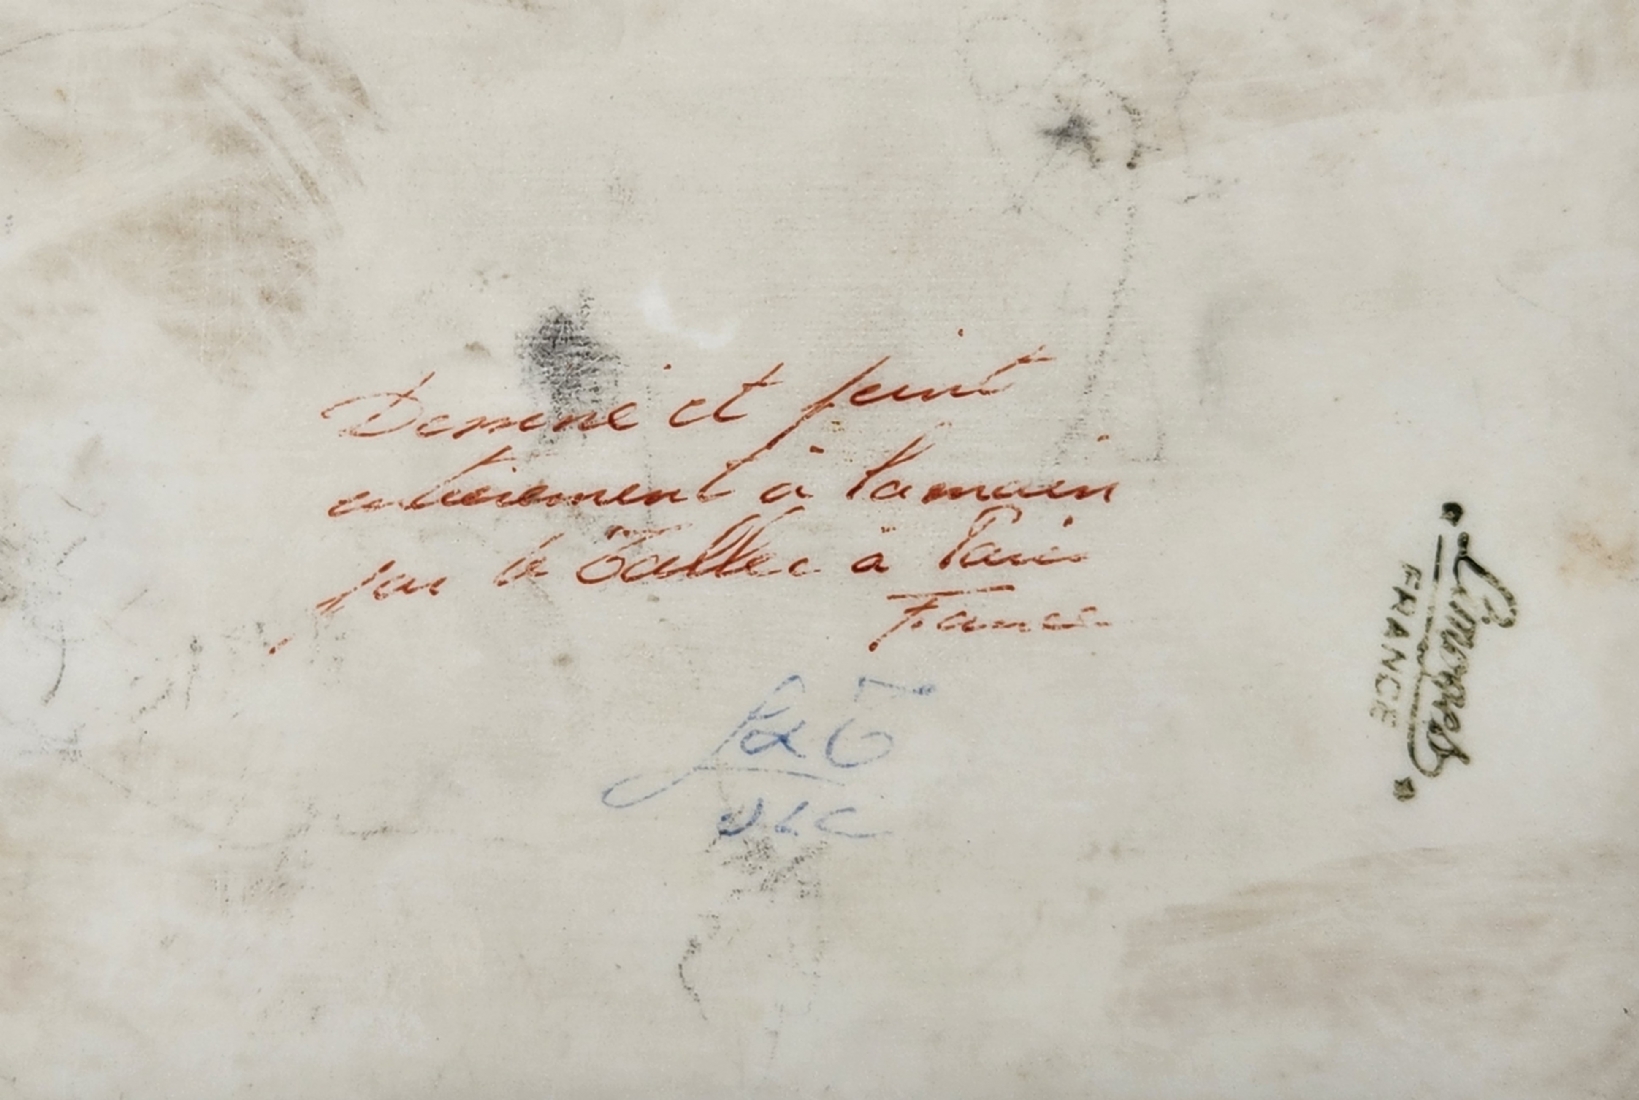 Dessiné et peint
entièrement à la main
par le Tallec à Paris
France
LeT
Limoges
FRANCE